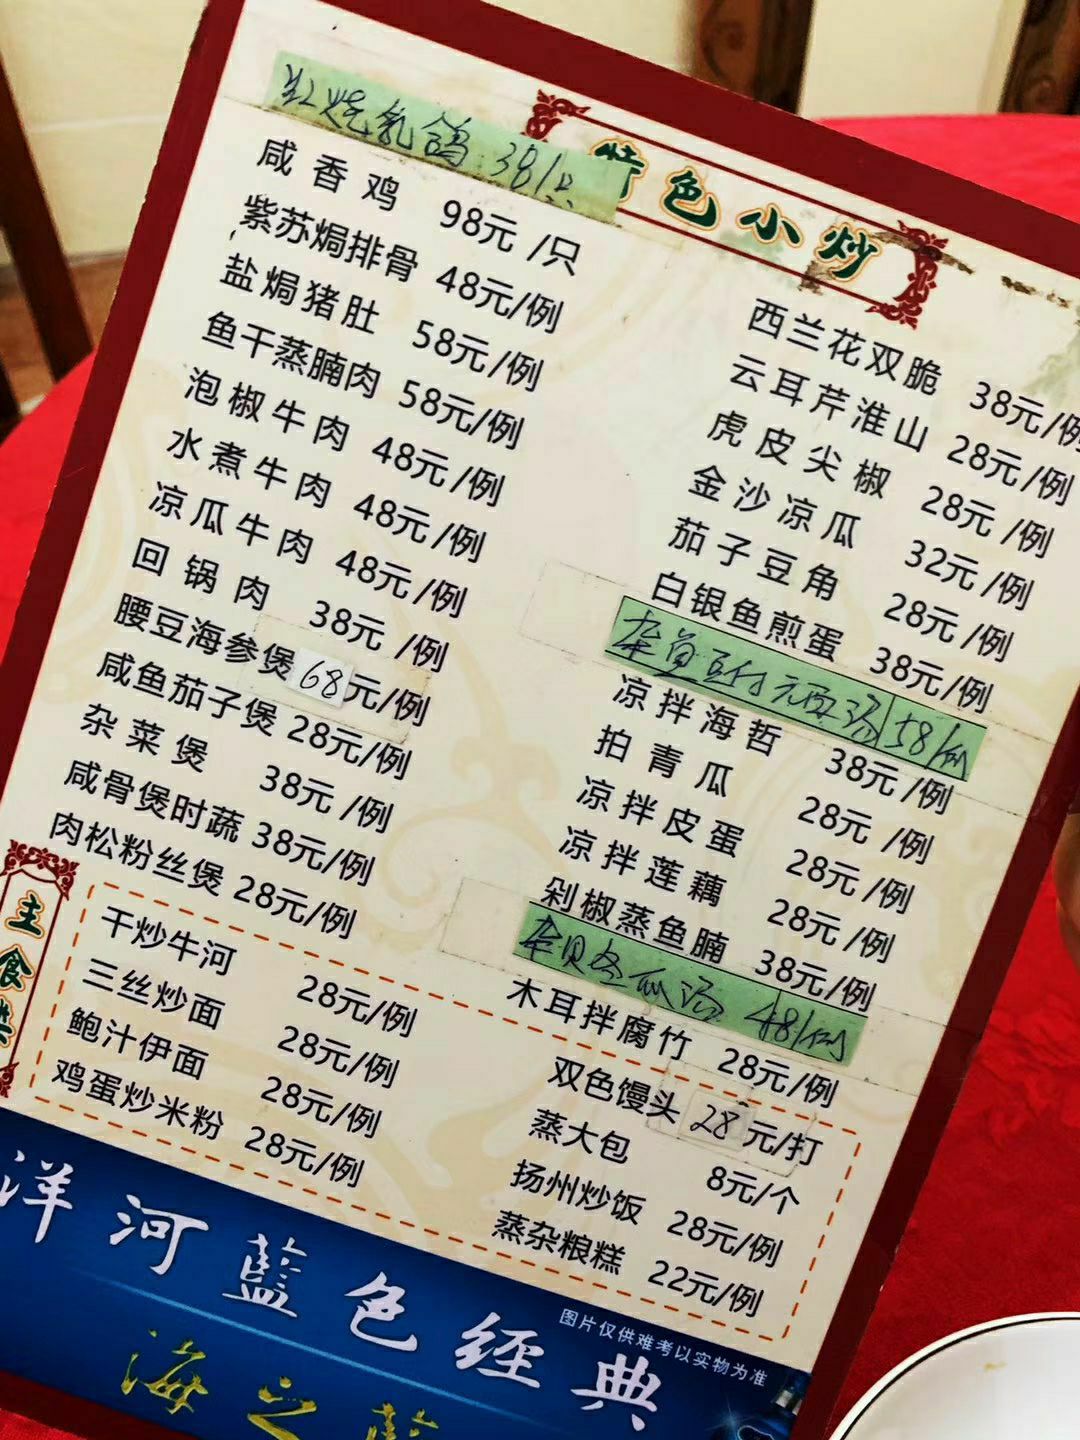 红烧乳鸽 38/只
特色小炒
咸香鸡 98元/只
紫苏焗排骨 48元/例
盐焗猪肚 58元/例
鱼干蒸腩肉 58元/例
泡椒牛肉 48元/例
水煮牛肉 48元/例
凉瓜牛肉 48元/例
回锅肉 38元/例
腰豆海参煲 68元/例
咸鱼茄子煲 28元/例
杂菜煲 38元/例
咸骨煲时蔬 38元/例
肉松粉丝煲 28元/例
西兰花双脆 38元/例
云耳芹淮山 28元/例
虎皮尖椒 28元/例
金沙凉瓜 32元/例
茄子豆角 28元/例
白银鱼煎蛋 38元/例
58/例
凉拌海哲 38元/例
拍青瓜 28元/例
凉拌皮蛋 28元/例
凉拌莲藕 28元/例
剁椒蒸鱼腩 38元/例
杂贝冬瓜汤 48/例
木耳拌腐竹 28元/例
主食类
干炒牛河 28元/例
三丝炒面 28元/例
鲍汁伊面 28元/例
鸡蛋炒米粉 28元/例
双色馒头 28元/打
蒸大包 8元/个
扬州炒饭 28元/例
蒸杂粮糕 22元/例
图片仅供难考以实物为准
洋河藍色经典
海之藍